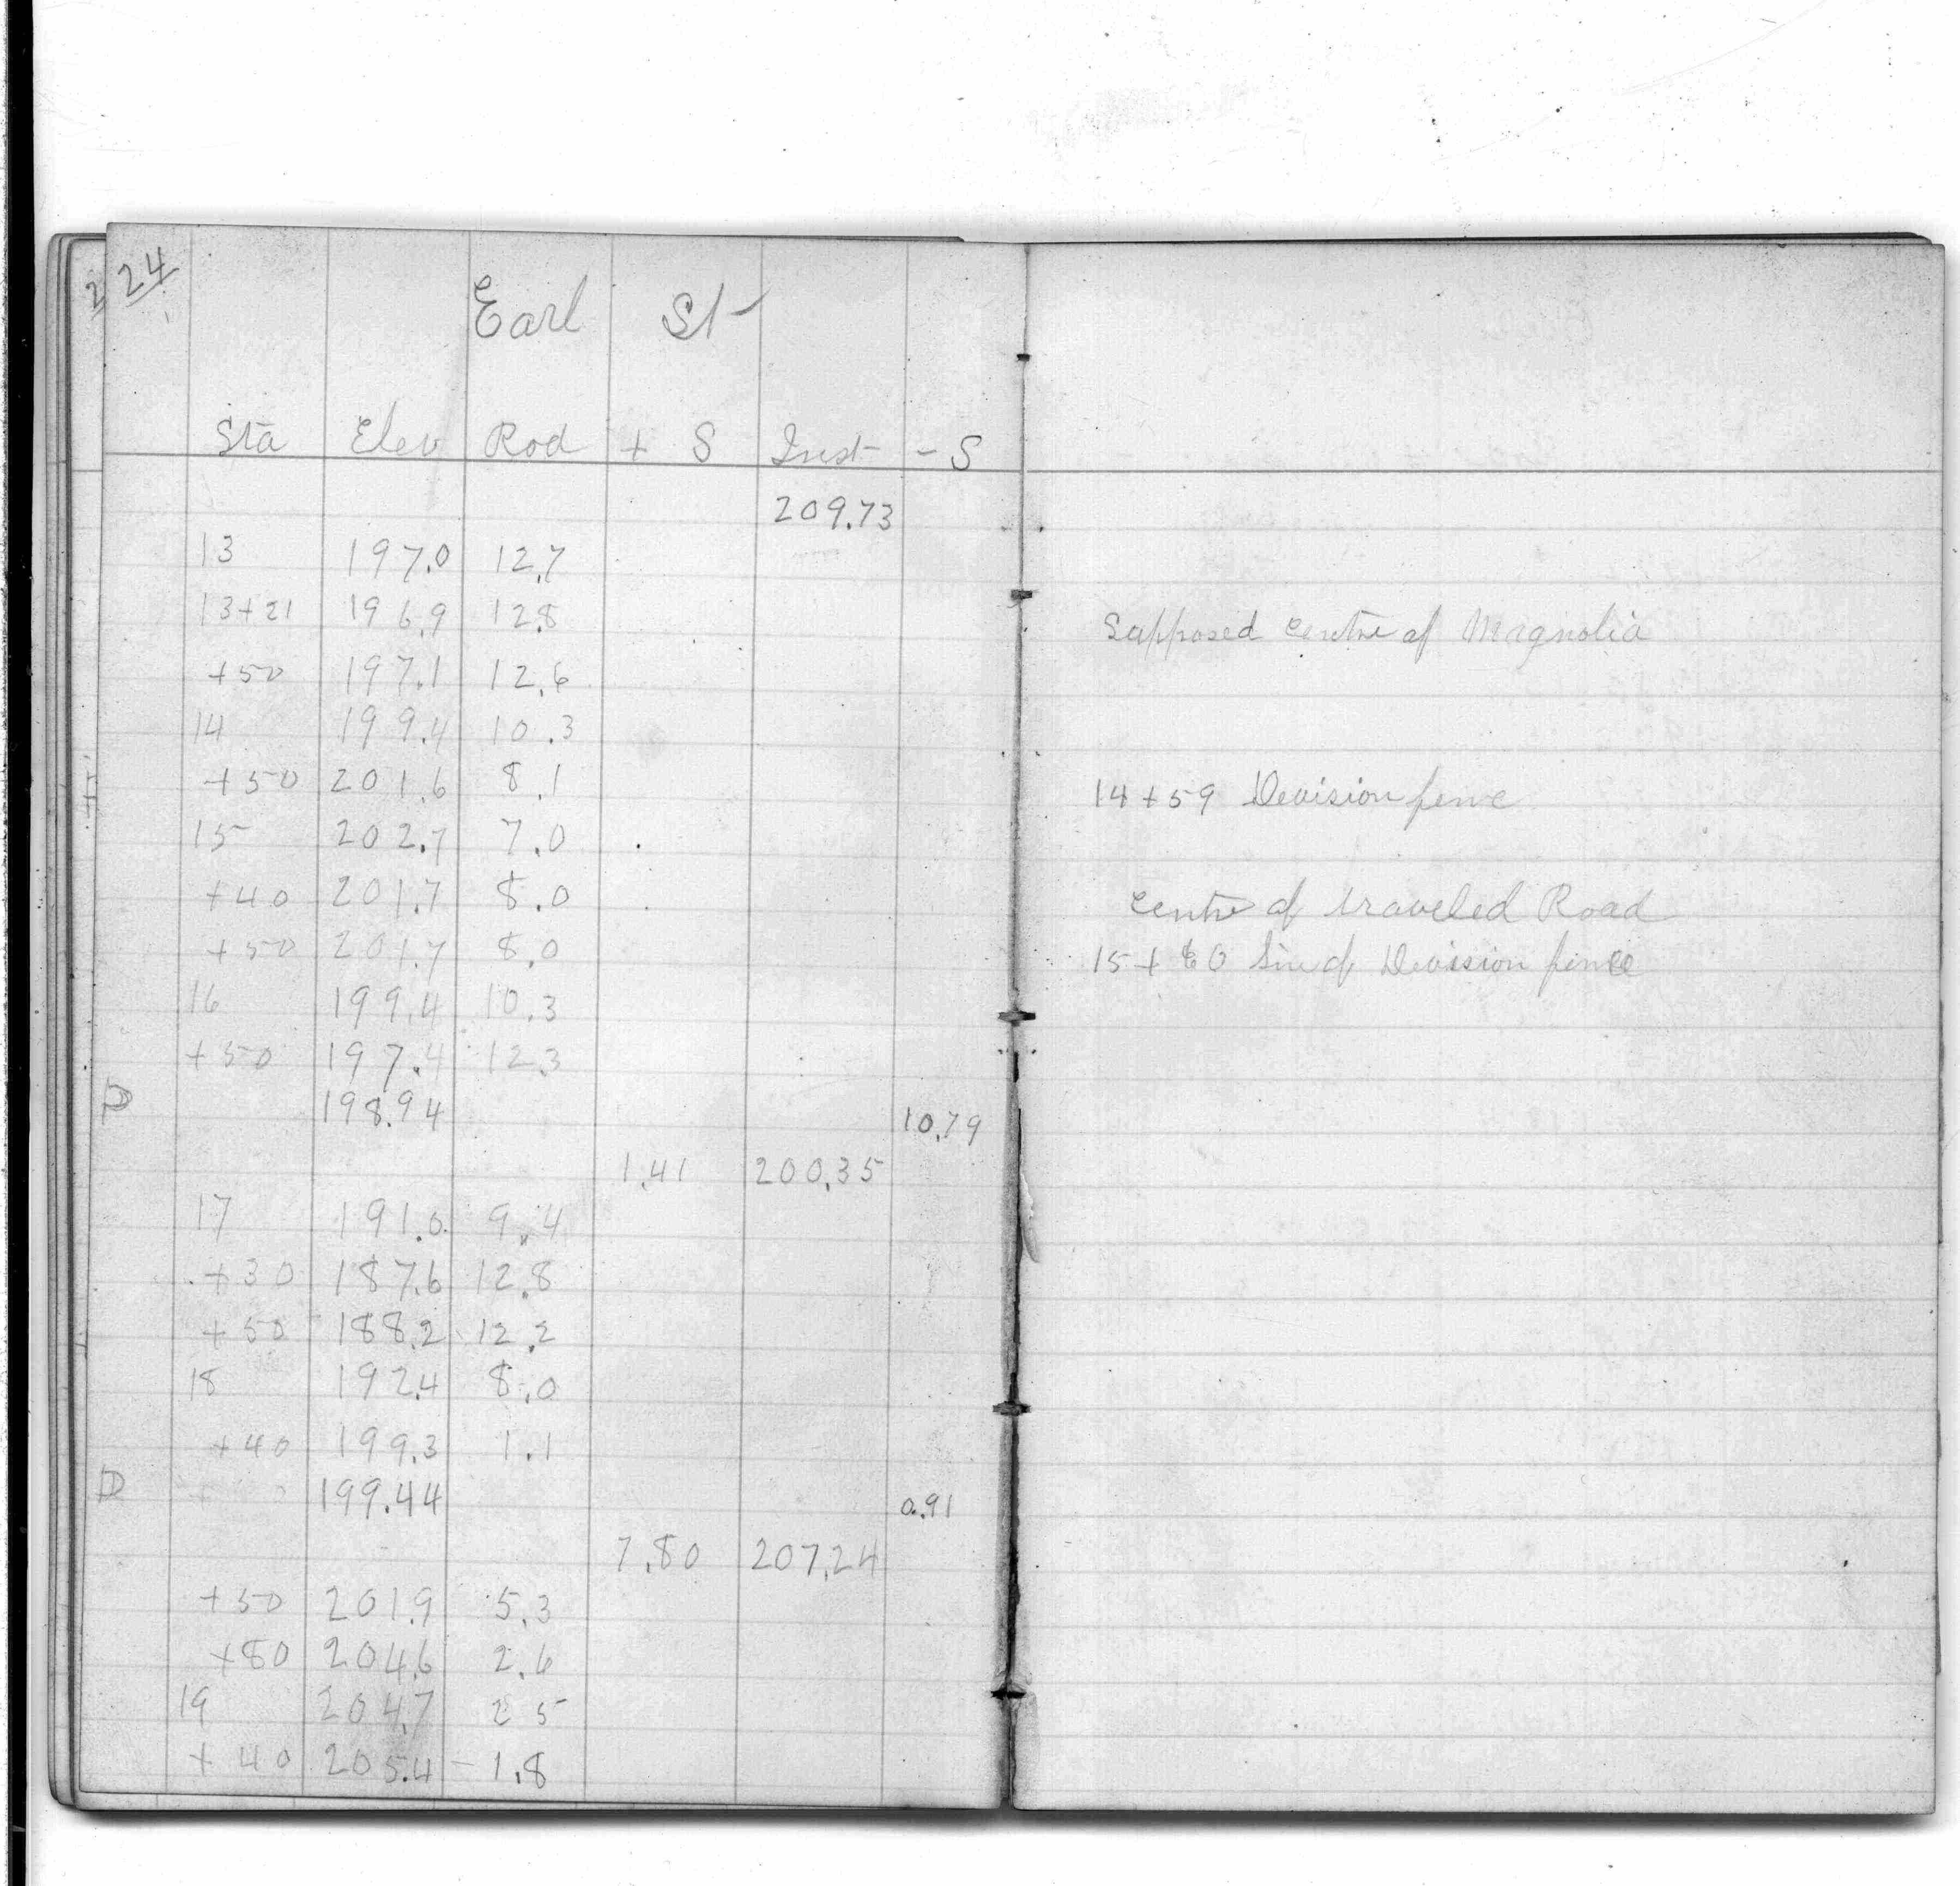 24
Earl St
Sta Elev Rod + S Inst - S
209.73
13 197.0 12.7
13+21 196.9 12.8 Supposed centre of Magnolia
+50 197.1 12.6
14 199.4 10.3
+50 201.6 8.1 14+59 Devision fence
15 202.7 7.0
+40 201.7 8.0 Centre of traveled Road
+50 201.7 8.0 15+60 Line of Devision fence
16 199.4 10.3
+50 197.4 12.3
D 198.94 10.79
1.41 200.35
17 191.0 9.4
+30 187.6 12.8
+50 188.2 12.2
18 192.4 8.0
+40 199.3 1.1
D 199.44 0.91
7.80 207.24
+50 201.9 5.3
+80 204.6 2.6
19 204.7 2 5
+40 205.4 - 1.8